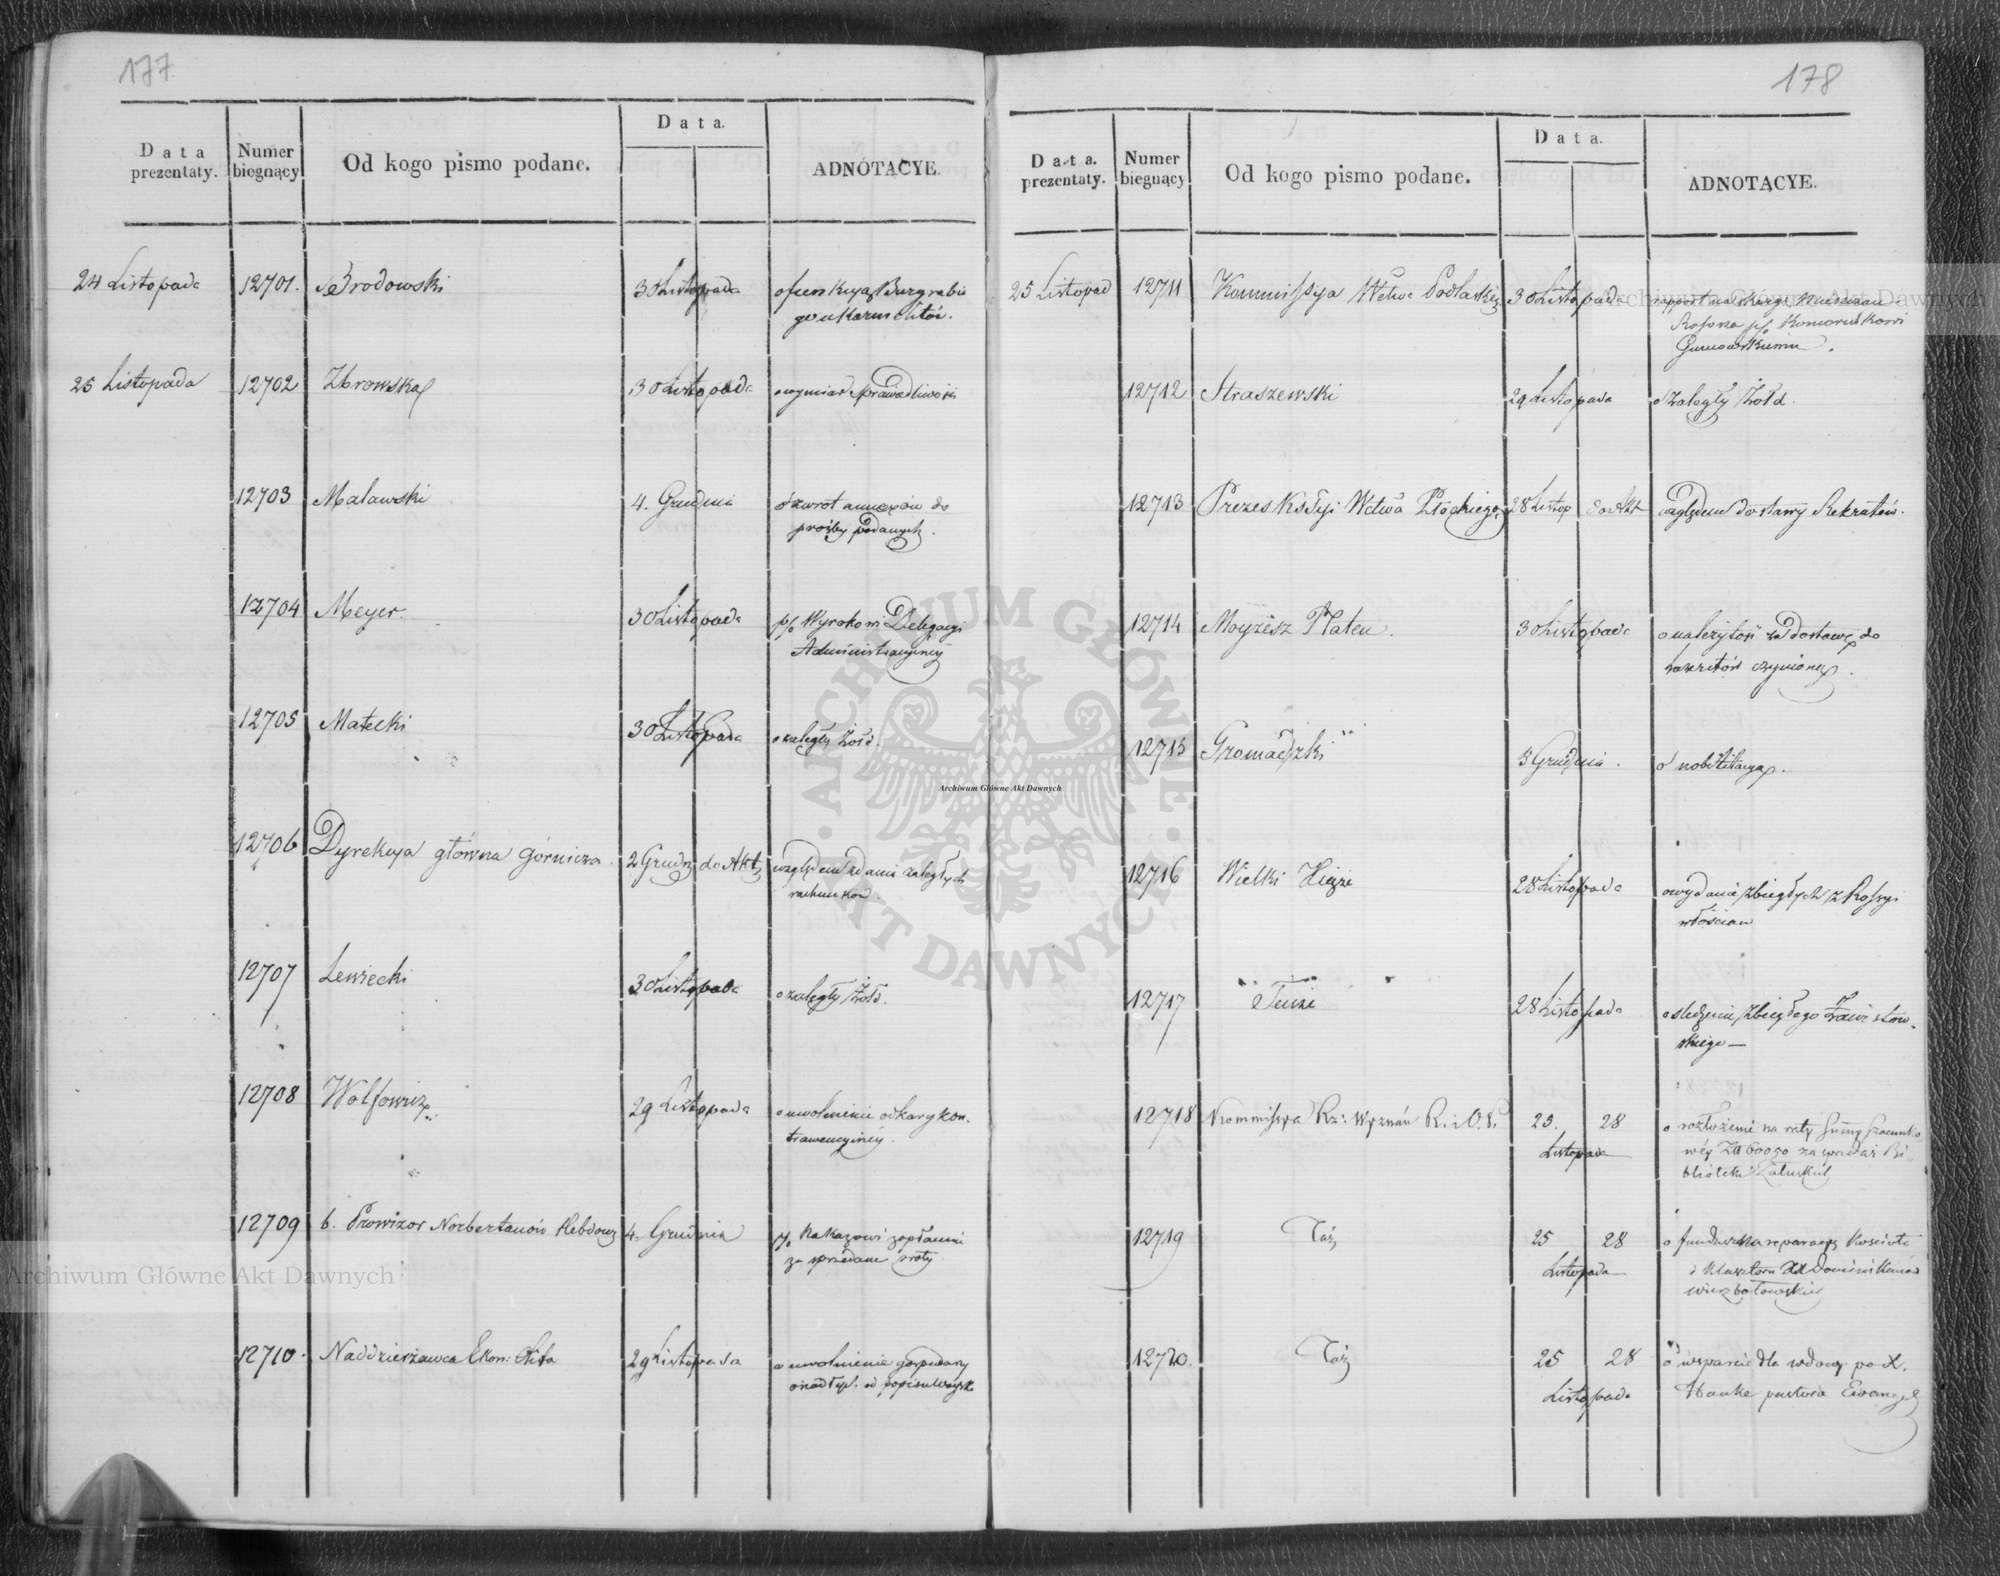 177
Data prezentaty.
Numer biegnący
Od kogo pismo podane.
Data.
ADNOTACYE.
24 Listopada 12701. Brodowski 30 Listopada o funkcyą Burgrabie
go u Karmelitów.
25 Listopada 12702 Zbrowska 30 Listopada o wymiar sprawiedliwości
12703 Malawski 4. Grudnia o zwrot annexów do
prośby podanych.
12704 Meyer. 30 Listopada p/o Wyrokom Delegacyi
Administracyjnej
12705 Matecki 30 Listopada o zaległy żołd.
12706 Dyrekcya główna górnicza. 2 Grudn do Akt względem zdania zaległych
rachunków.
12707 Lewiecki 30 Listopada o zaległy żołd.
12708 Wolfowicz 29 Listopada o uwolnienie od kary kon-
trawencyjnéy.
12709 b. Prowizor Norbertanów Hebdow 4. Grudnia p/o Nakazowi zapłacenia
za sprzedane
12710. Naddzierżawca Ekon: 29 Listopada o uwolnienie gospodarzy
od popisu Woysk
178
Data. prezentaty.
Numer biegnący
Od kogo pismo podane.
Data.
ADNOTACYE.
25 Listopad 12711 Kommissya Wctwa Podlaskie 30 Listopada rapport na skargę Mieszczan
p/o Komornikowi
12712 Straszewski 29 Listopada o zaległy żołd.
12713 Prezes Kssyi Wctwa Płockiego 28 Listop do Akt względem dostawy Rekrutów.
12714 Moyżesz Platen. 30 Listopada o należytość za dostawę do
lazaretów czynioną.
12715 Gromadzki 3 Grudnia. o nobilitacyą.
12716 Wielki Xiąże 28 Listopada o wydanie zbiegłych z Rossyi
włościan
12717 Tenże 28 Listopada o śledzenie zbiegłego Zawistow-
skiego —
12718 Kommissya Rz: Wyznań R. i O. P. 25. 28
Listopada
o rozłożenie na raty Summy szacunko-
wéy Zł 60050 za sprzedaż Bi-
blioteki Załuskich
12719 Taż 25 28
Listopada
o fundusz na reparacyą Kościoła
i Klasztoru XX Dominikanów
wierzbołowskich
12720. Taż 25 28
Listopada
o wsparcie dla wdowy po X.
Hanke pastorze Ewangel
Archiwum Główne Akt Dawnych
ARCHIWUM GŁÓWNE AKT DAWNYCH
Archiwum Główne Akt Dawnych
Archiwum Główne Akt Dawnych